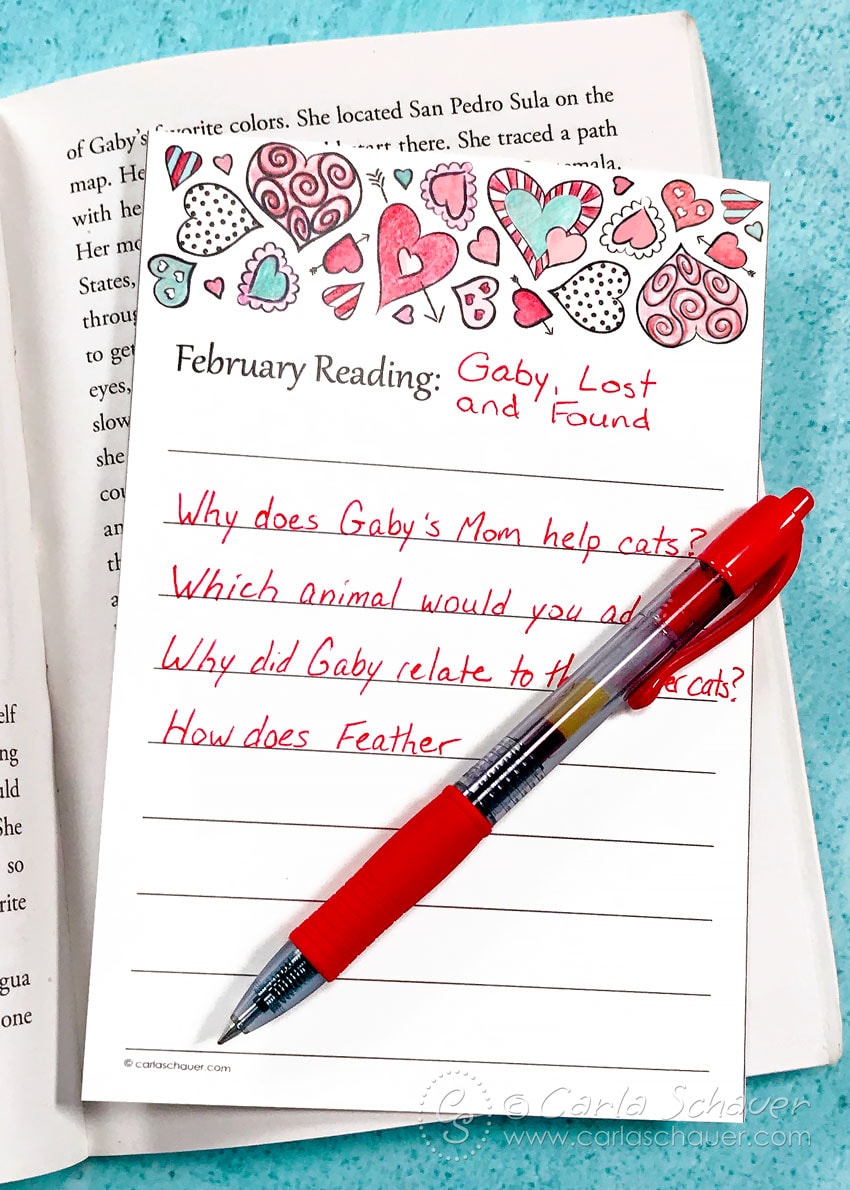 of Gaby's favorite colors. She located San Pedro Sula on the
map. He start there. She traced a path
with he
Her mo
States,
throug
to get
eyes,
slow
she
cou
an
th
a
February Reading: Gaby, Lost
and Found
Why does Gaby's Mom help cats?
Which animal would you ad
Why did Gaby relate to th er cats?
How does Feather
elf
ng
uld
She
so
rite
gua
one
© carlaschauer.com
CS © Carla Schauer
www.carlaschauer.com